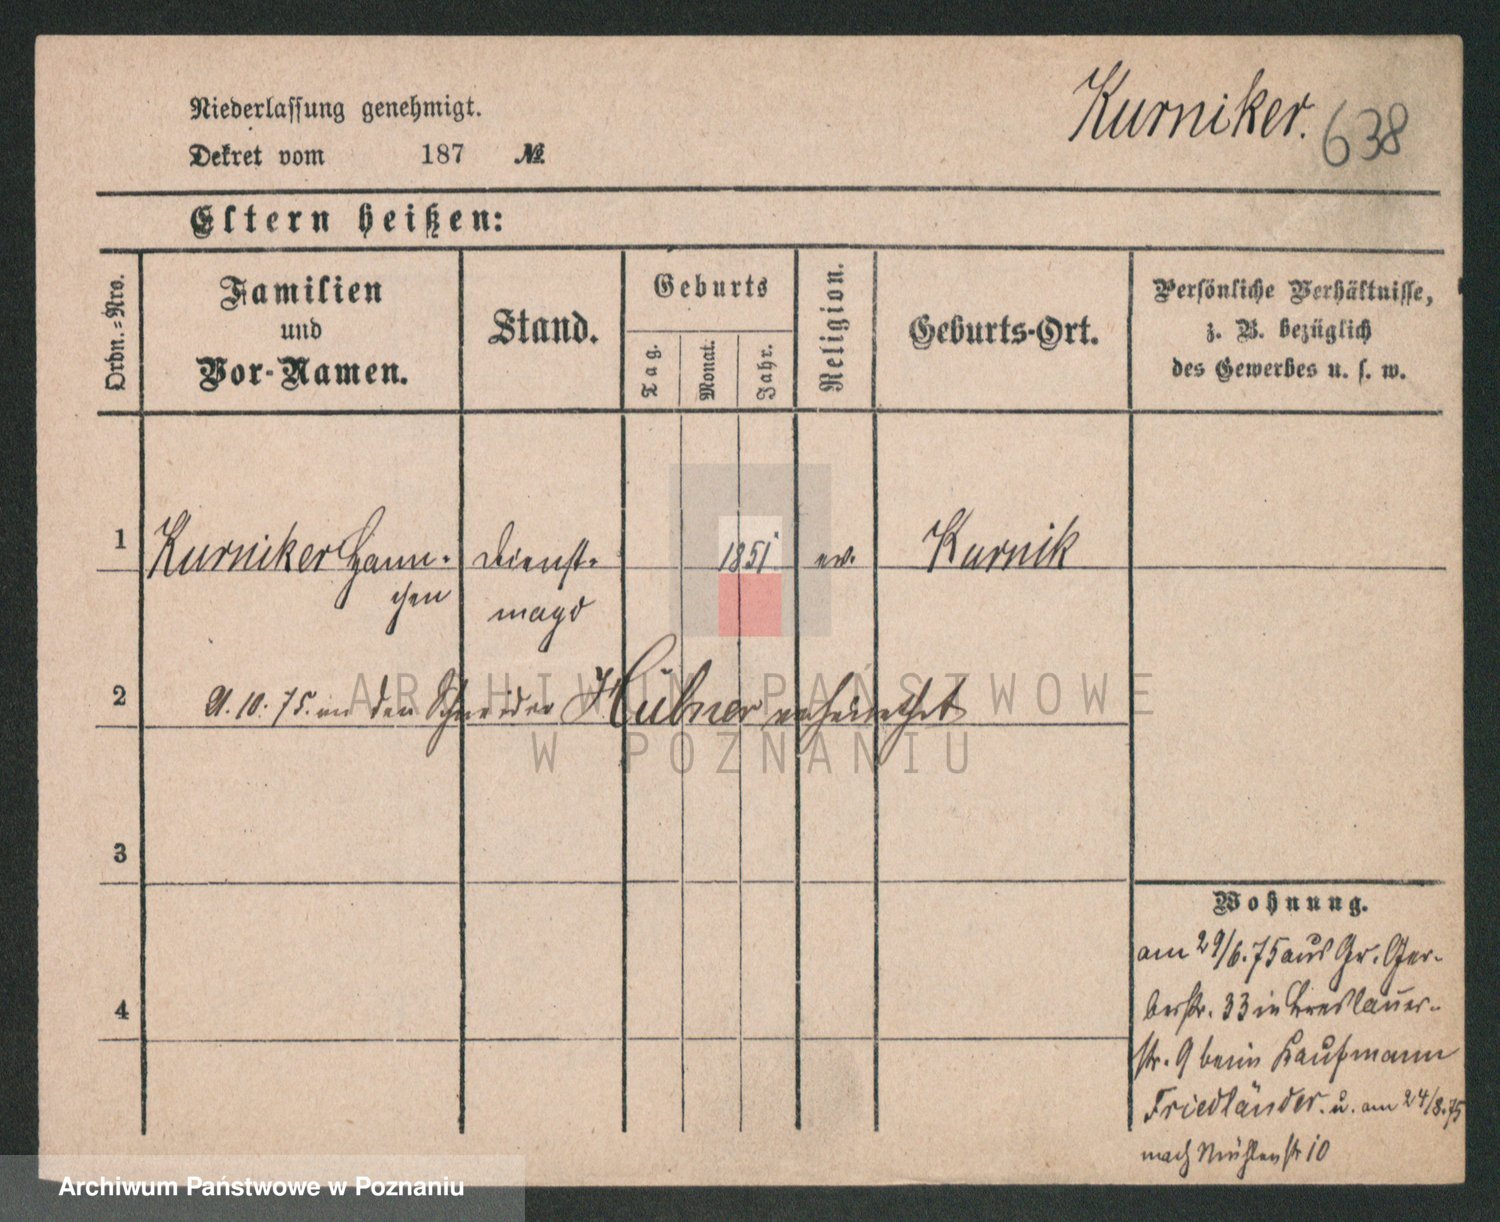 Niederlassung genehmigt.
Dekret vom 187 №
Kurniker. 638
Eltern heißen:
Ordn.=Nro.
Familien
und
Vor-Namen.
Stand.
Geburts
Tag.
Monat.
Jahr.
Religion.
Geburts-Ort.
Persönliche Verhältnisse,
z. B. bezüglich
des Gewerbes u. s. w.
1 Kurniker Hann- Dienst- 1851 ev. Kurnik
chen magd
2 10. 75. an den Schneider Hübner verheirathet
3
4
Wohnung.
am 29/6.75 aus Gr. Ger-
berstr. 33 in Breslauer-
str. 9 beim Kaufmann
Friedländer. u. am 24/8.75
nach Mühlenstr 10
ARCHIWUM PAŃSTWOWE
W POZNANIU
Archiwum Państwowe w Poznaniu